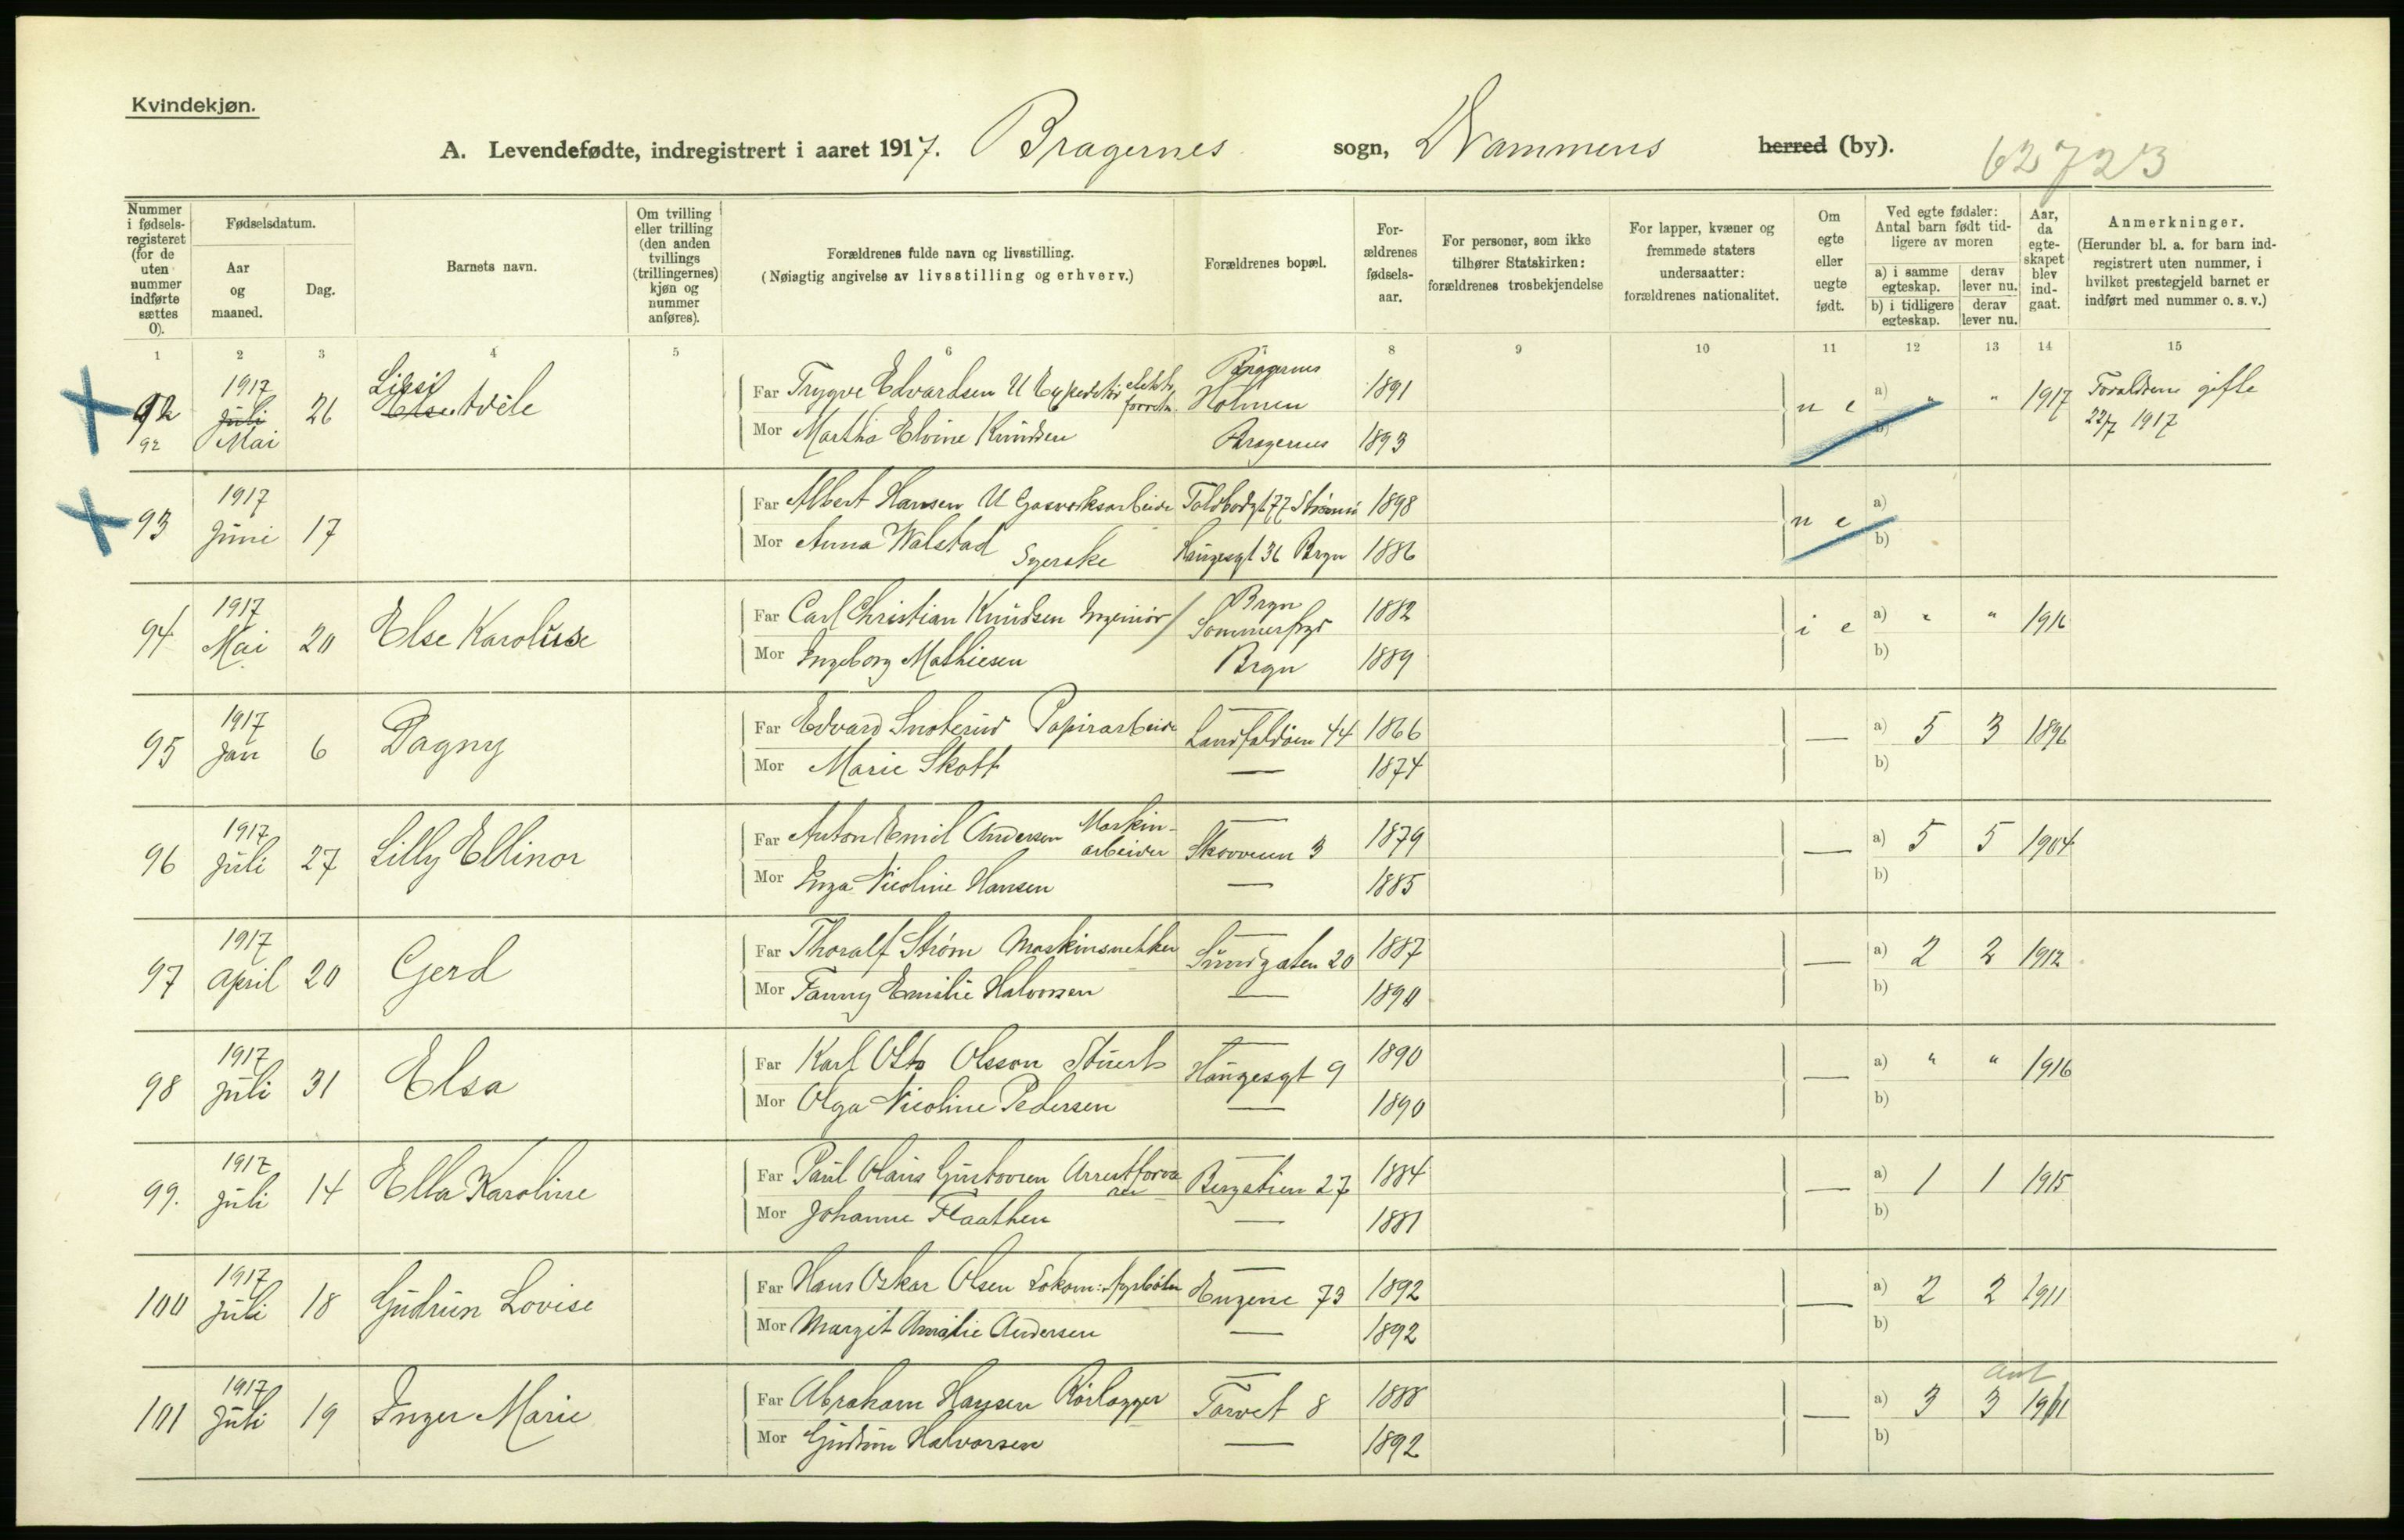 Kvindekjøn.
A. Levendefødte, indregistrert i aaret 1917. Bragernes sogn, Drammens herred (by). 62723
Nummer i fødsels-registeret (for de uten nummer indførte sættes 0).
Fødselsdatum.
Aar og maaned.
Dag.
Barnets navn.
Om tvilling eller trilling (den anden tvillings (trillingernes) kjøn og nummer anføres).
Forældrenes fulde navn og livsstilling.
(Nøiagtig angivelse av livsstilling og erhverv.)
Forældrenes bopæl.
For-ældrenes fødsels-aar.
For personer, som ikke tilhører Statskirken: forældrenes trosbekjendelse
For lapper, kvæner og fremmede staters undersaatter: forældrenes nationalitet.
Om egte eller uegte født.
Ved egte fødsler: Antal barn født tid-ligere av moren
a) i samme egteskap.
derav lever nu.
b) i tidligere egteskap.
derav lever nu.
Aar, da egte-skapet blev ind-gaat.
Anmerkninger.
(Herunder bl. a. for barn ind-registrert uten nummer, i hvilket prestegjeld barnet er indført med nummer o. s. v.)
1 2 3 4 5 6 7 8 9 10 11 12 13 14 15
92 1917 Juli 26 Far Trygve Edvardsen U Bragernes Holmen 1891 u e a) " " 1917 Forældrene gifte
92 Mai Mor Martha Elvine Knudsen Bragernes 1893 b) 22/7 1917
93 1917 Juni 17 Far Albert Hansen U Gasverksarbeider Toldbodgt 77 Strømsø 1898 u e a)
Mor Anna Walstad Syerske Haugesgt 36 Brgn 1886 b)
94 1917 Mai 20 Else Karoline Far Carl Christian Knudsen Ingeniør Brgn Sommerfryd 1882 i e a) " " 1916
Mor Ingeborg Mathiesen Brgn 1889 b)
95 1917 Jan 6 Dagny Far Edvard Papirarbeider Landfaldøen 44 1866 — a) 5 3 1896
Mor Marie Skott — 1874 b)
96 1917 Juli 27 Lilly Ellinor Far Anton Emil Andersen Maskin-arbeider Skovveien 3 1879 — a) 5 5 1904
Mor Inga Nicoline Hansen — 1885 b)
97 1917 April 20 Gerd Far Thoralf Strøm Maskinsnekker Sundgaten 20 1887 — a) 2 2 1912
Mor Fanny Emilie Halvorsen — 1890 b)
98 1917 Juli 31 Elsa Far Karl Otto Olsson Stuert Haugesgt 9 1890 — a) " " 1916
Mor Olga Nicoline Pedersen — 1890 b)
99. 1917 Juli 14 Ella Karoline Far Paul Olaus Gustavsen Bergstien 27 1884 — a) 1 1 1915
Mor Johanne Flaathen — 1881 b)
100 1917 Juli 18 Gudrun Lovise Far Hans Oskar Olsen Lokom: fyrbøter Engene 73 1892 — a) 2 2 1911
Mor Margit Amalie Andersen — 1892 b)
101 1917 Juli 19 Inger Marie Far Abraham Hansen Rørlægger Torvet 8 1888 — a) 3 3 1911
Mor Gudrun Halvorsen — 1892 b)